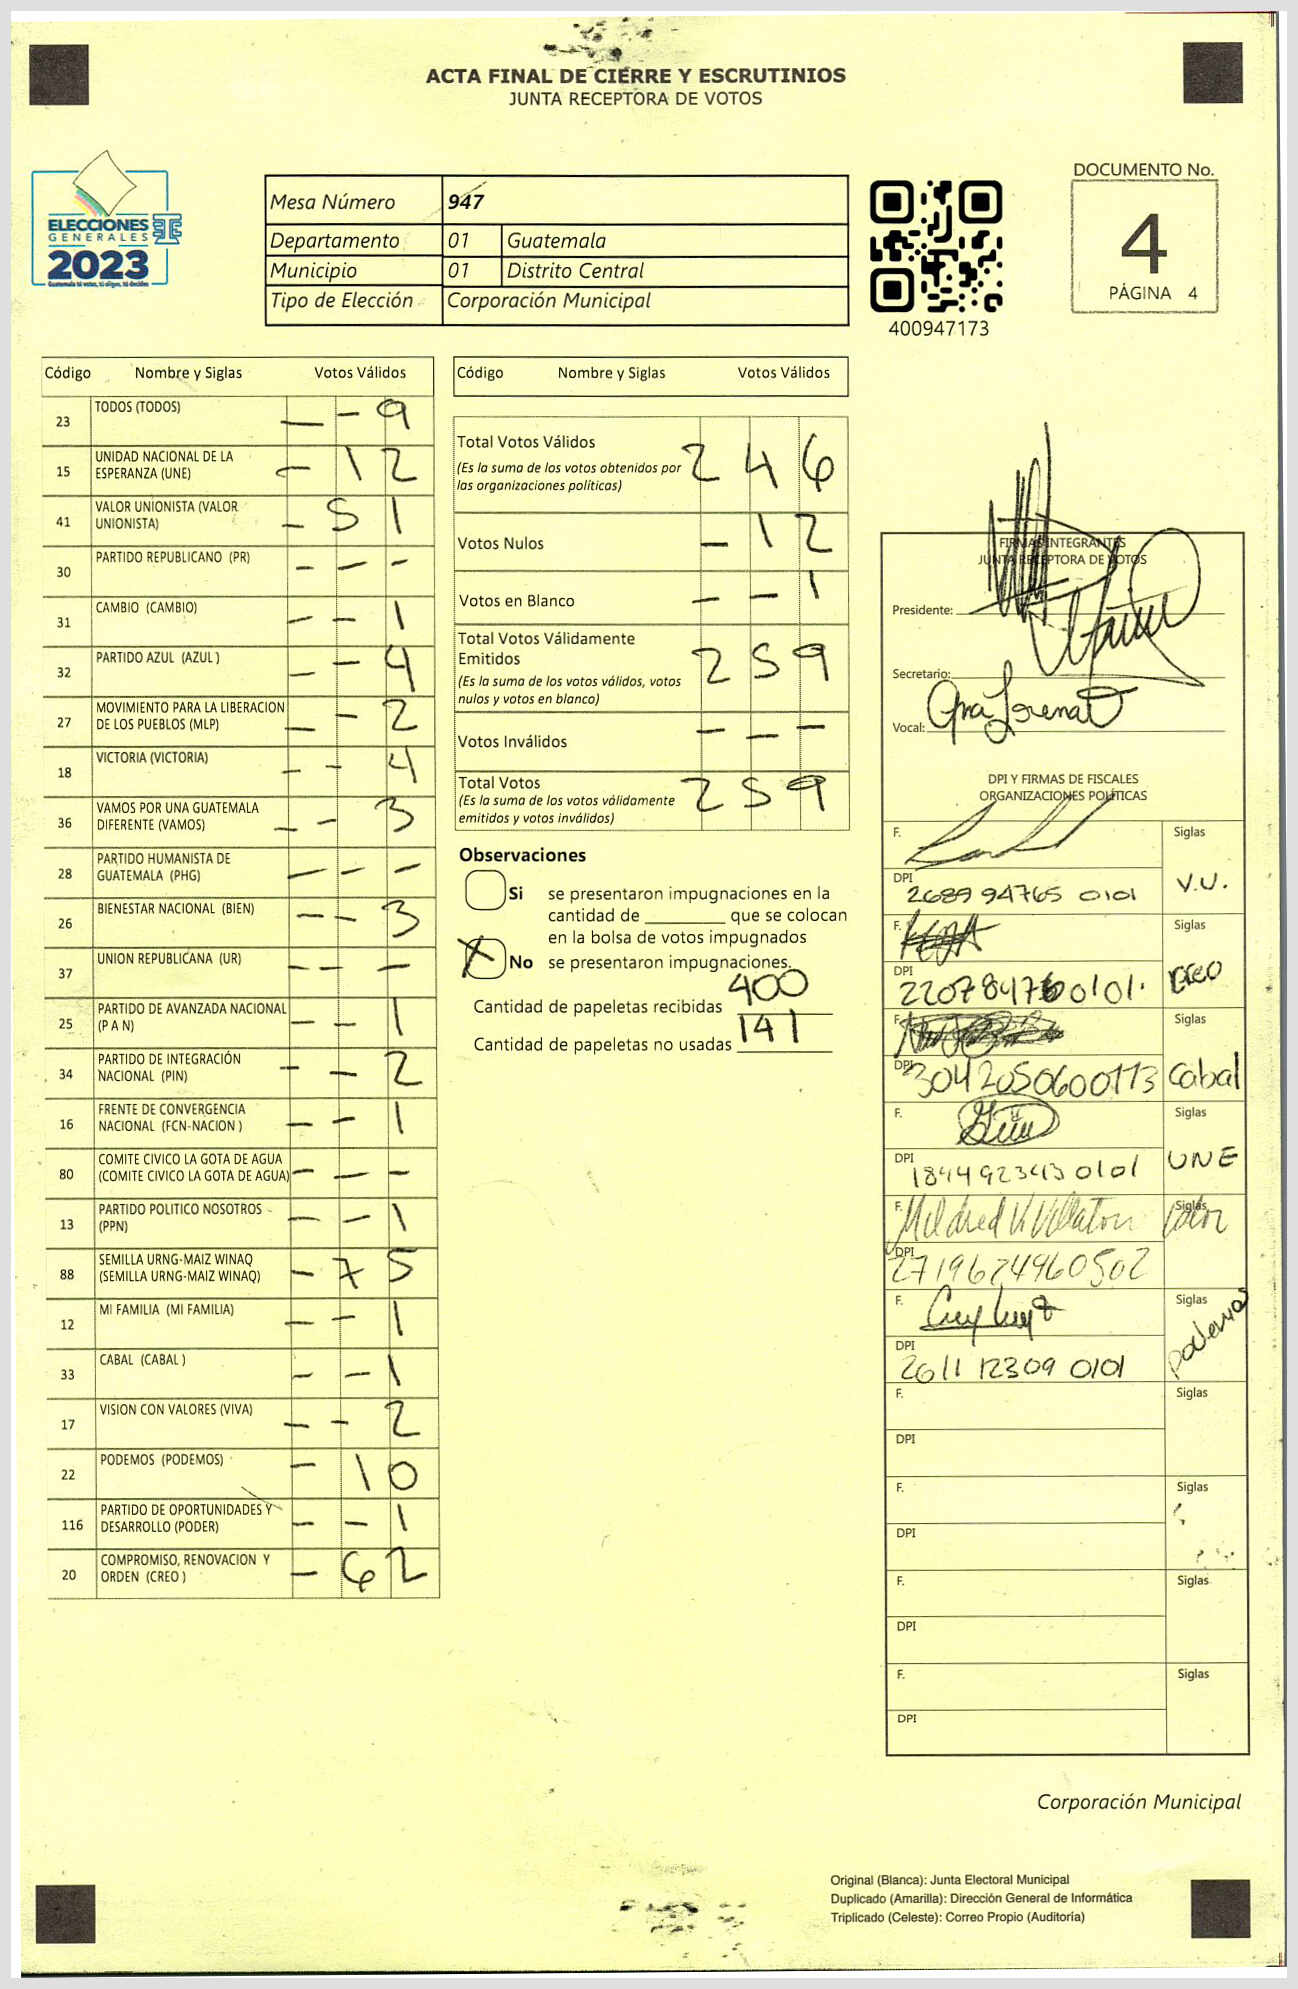 ACTA FINAL DE CIERRE Y ESCRUTINIOS
JUNTA RECEPTORA DE VOTOS
ELECCIONES
GENERALES
2023
Guatemala tú votas, tú eliges, tú decides
Mesa Número 947
Departamento 01 Guatemala
Municipio 01 Distrito Central
Tipo de Elección Corporación Municipal
400947173
DOCUMENTO No.
4
PÁGINA 4
Código Nombre y Siglas Votos Válidos
23 TODOS (TODOS) — - 9
15 UNIDAD NACIONAL DE LA ESPERANZA (UNE) - 1 2
41 VALOR UNIONISTA (VALOR UNIONISTA) - 5 1
30 PARTIDO REPUBLICANO (PR) - - -
31 CAMBIO (CAMBIO) - - 1
32 PARTIDO AZUL (AZUL ) - - 4
27 MOVIMIENTO PARA LA LIBERACION DE LOS PUEBLOS (MLP) - - 2
18 VICTORIA (VICTORIA) - - 4
36 VAMOS POR UNA GUATEMALA DIFERENTE (VAMOS) - - 3
28 PARTIDO HUMANISTA DE GUATEMALA (PHG) - - -
26 BIENESTAR NACIONAL (BIEN) - - 3
37 UNION REPUBLICANA (UR) - - -
25 PARTIDO DE AVANZADA NACIONAL (P A N) - - 1
34 PARTIDO DE INTEGRACIÓN NACIONAL (PIN) - - 2
16 FRENTE DE CONVERGENCIA NACIONAL (FCN-NACION ) - - 1
80 COMITE CIVICO LA GOTA DE AGUA (COMITE CIVICO LA GOTA DE AGUA) - - -
13 PARTIDO POLITICO NOSOTROS (PPN) - - 1
88 SEMILLA URNG-MAIZ WINAQ (SEMILLA URNG-MAIZ WINAQ) - 7 5
12 MI FAMILIA (MI FAMILIA) - - 1
33 CABAL (CABAL ) - - 1
17 VISION CON VALORES (VIVA) - - 2
22 PODEMOS (PODEMOS) - 1 0
116 PARTIDO DE OPORTUNIDADES Y DESARROLLO (PODER) - - 1
20 COMPROMISO, RENOVACION Y ORDEN (CREO ) - 6 2
Código Nombre y Siglas Votos Válidos
Total Votos Válidos 2 4 6
(Es la suma de los votos obtenidos por
las organizaciones políticas)
Votos Nulos - 1 2
Votos en Blanco - - 1
Total Votos Válidamente
Emitidos 2 5 9
(Es la suma de los votos válidos, votos
nulos y votos en blanco)
Votos Inválidos - - -
Total Votos 2 5 9
(Es la suma de los votos válidamente
emitidos y votos inválidos)
Observaciones
Si se presentaron impugnaciones en la
cantidad de ________ que se colocan
en la bolsa de votos impugnados
X No se presentaron impugnaciones.
Cantidad de papeletas recibidas 400
Cantidad de papeletas no usadas 141
FIRMAS INTEGRANTES
JUNTA RECEPTORA DE VOTOS
Presidente:
Secretario:
Vocal: Ana Lorena
DPI Y FIRMAS DE FISCALES
ORGANIZACIONES POLÍTICAS
F. Siglas
DPI 2689 94765 0101 V.U.
F. Siglas
DPI Creo
F. Siglas
DPI 3042050600113 Cabal
F. Siglas
DPI 1844923430101 UNE
F. Mildred Siglas
DPI 2719624960502
F. Siglas
DPI 2611 12309 0101 podemos
F. Siglas
DPI
F. Siglas
DPI
F. Siglas
DPI
F. Siglas
DPI
Corporación Municipal
Original (Blanca): Junta Electoral Municipal
Duplicado (Amarilla): Dirección General de Informática
Triplicado (Celeste): Correo Propio (Auditoría)